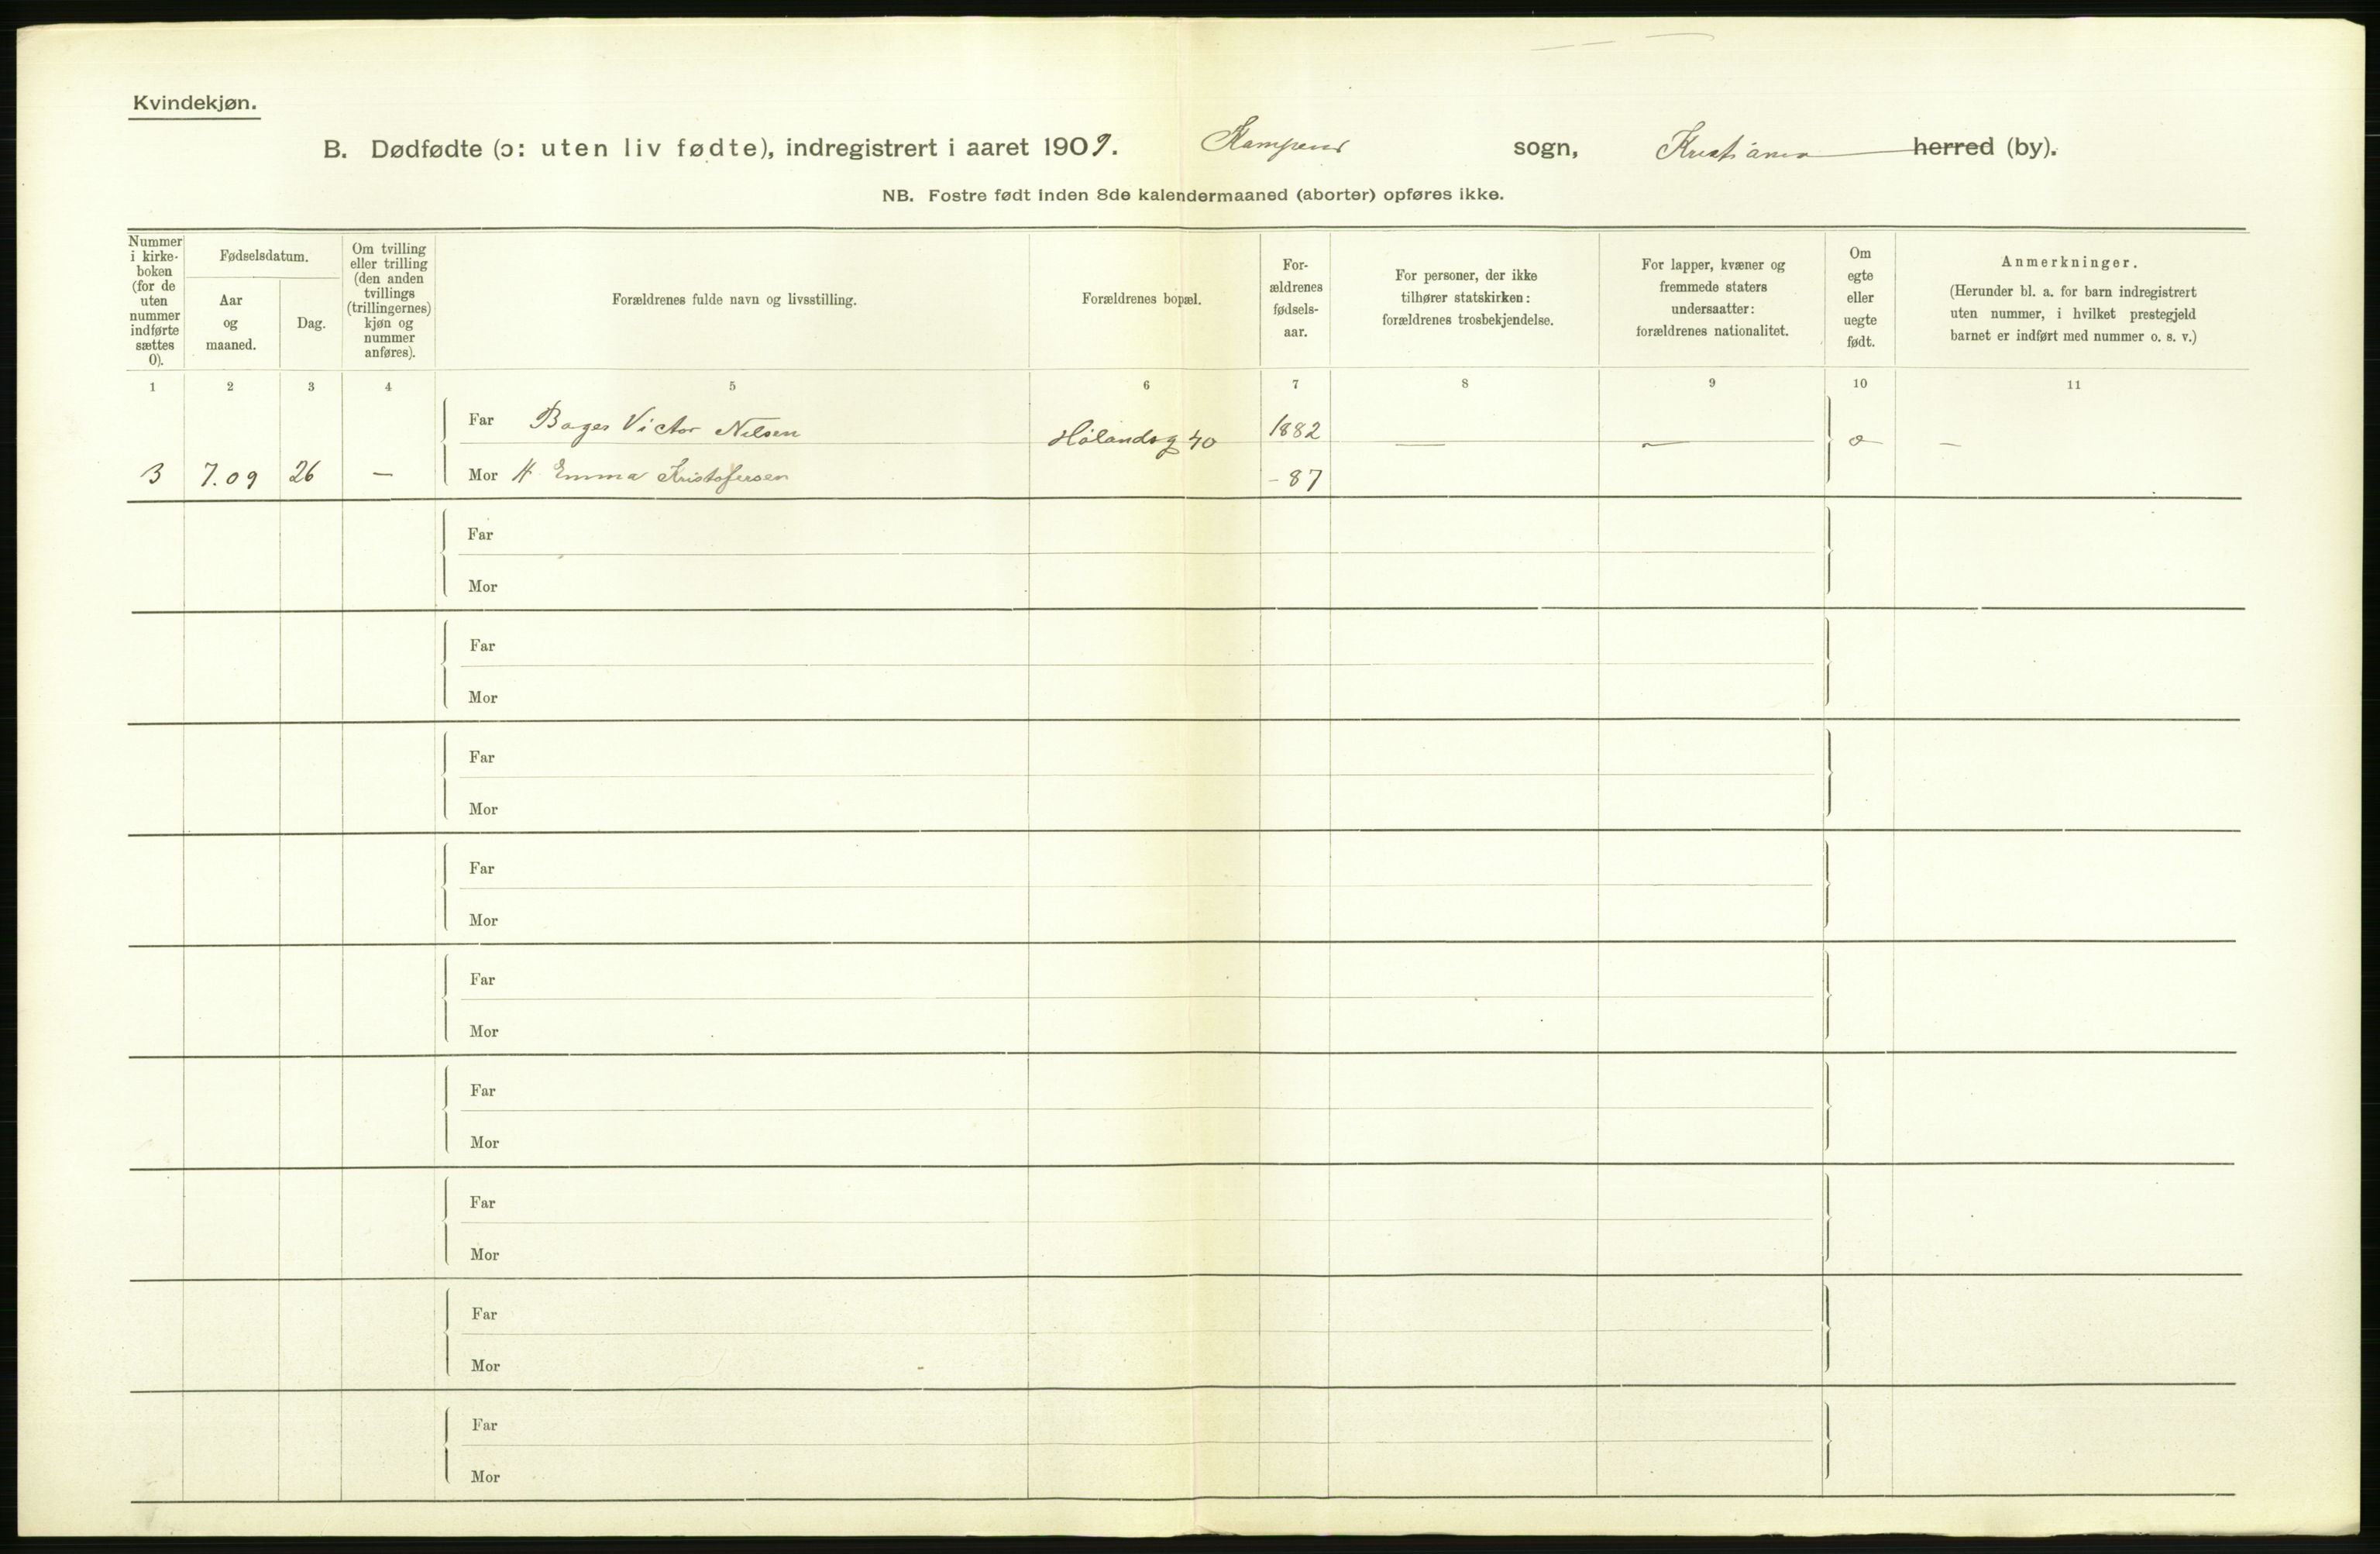 Kvindekjøn.
B. Dødfødte (ɔ: uten liv fødte), indregistrert i aaret 1909. Kampens sogn, Kristiania herred (by).
NB. Fostre født inden 8de kalendermaaned (aborter) opføres ikke.
Nummer
i kirke-
boken
(for de
uten
nummer
indførte
sættes
0).
Fødselsdatum.
Aar
og
maaned.
Dag.
Om tvilling
eller trilling
(den anden
tvillings
(trillingernes)
kjøn og
nummer
anføres).
Forældrenes fulde navn og livsstilling.
Forældrenes bopæl.
For-
ældrenes
fødsels-
aar.
For personer, der ikke
tilhører statskirken:
forældrenes trosbekjendelse.
For lapper, kvæner og
fremmede staters
undersaatter:
forældrenes nationalitet.
Om
egte
eller
uegte
født.
Anmerkninger.
(Herunder bl. a. for barn indregistrert
uten nummer, i hvilket prestegjeld
barnet er indført med nummer o. s. v.)
1 2 3 4 5 6 7 8 9 10 11
Far Bager Victor Nilsen Hølandsg 40 1882 — — —
3 7.09 26 — Mor H. Emma Kristofersen - 87
Far
Mor
Far
Mor
Far
Mor
Far
Mor
Far
Mor
Far
Mor
Far
Mor
Far
Mor
Far
Mor